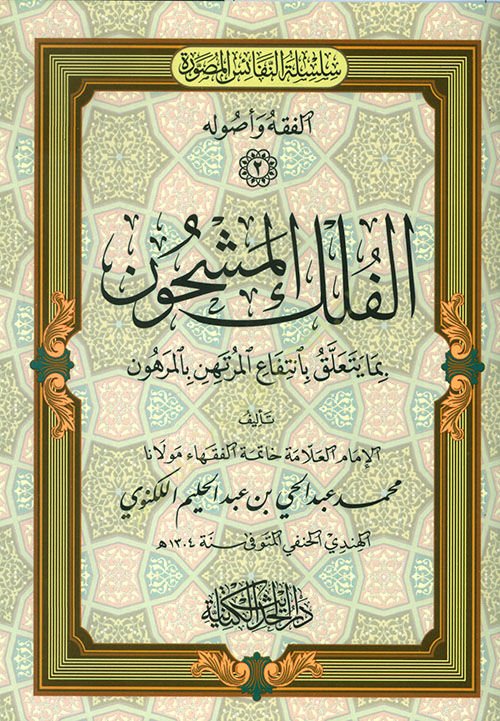 سلسلة النفائس المصورة
الفقه وأصوله
٢
الفُلك المشحون
بِمَا يَتَعَلَّقُ بِانتِفَاعِ المُرتَهِنِ بِالمَرهُون
تَأليفُ
الإمام العلّامة خاتمة الفقهاء مولانا
محمد عبد الحي بن عبد الحليم اللكنوي
الهندي الحنفي المتوفى سنة ١٣٠٤ هـ